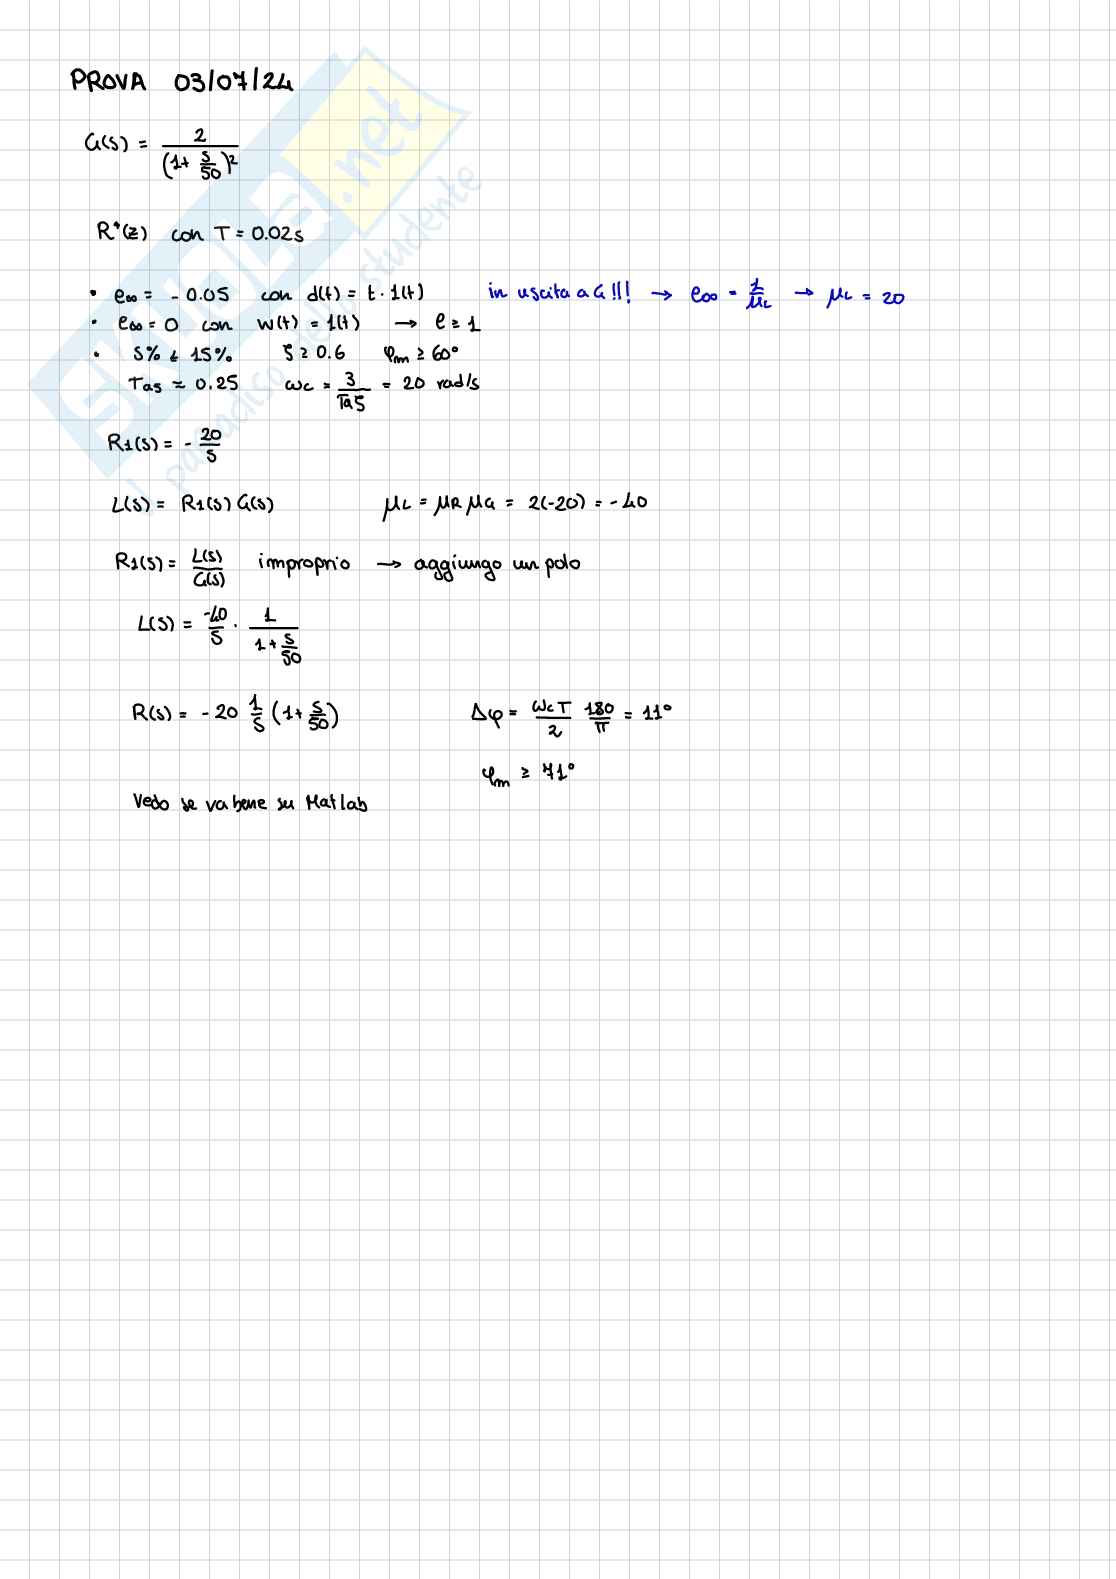 PROVA 03/07/24
G(s) = 2 / (1 + s/50)²
R*(z) con T = 0.02s
• e∞ = - 0.05 con d(t) = t · 1(t) in uscita a G!!! → e∞ = 1/μL → μL = 20
• e∞ = 0 con w(t) = 1(t) → e ≥ 1
• S% ≤ 15% ζ ≥ 0.6 φm ≥ 60°
Ta5 ≈ 0.25 ωc = 3/Ta5 = 20 rad/s
R1(s) = - 20/s
L(s) = R1(s) G(s) μL = μR μG = 2(-20) = - 40
R1(s) = L(s)/G(s) improprio → aggiungo un polo
L(s) = -40/s · 1/(1 + s/50)
R(s) = - 20 1/s (1 + s/50) Δφ = ωc T/2 180/π = 11°
φm ≥ 71°
Vedo se va bene su Matlab
SKUOLA.net
paradiso dello studente